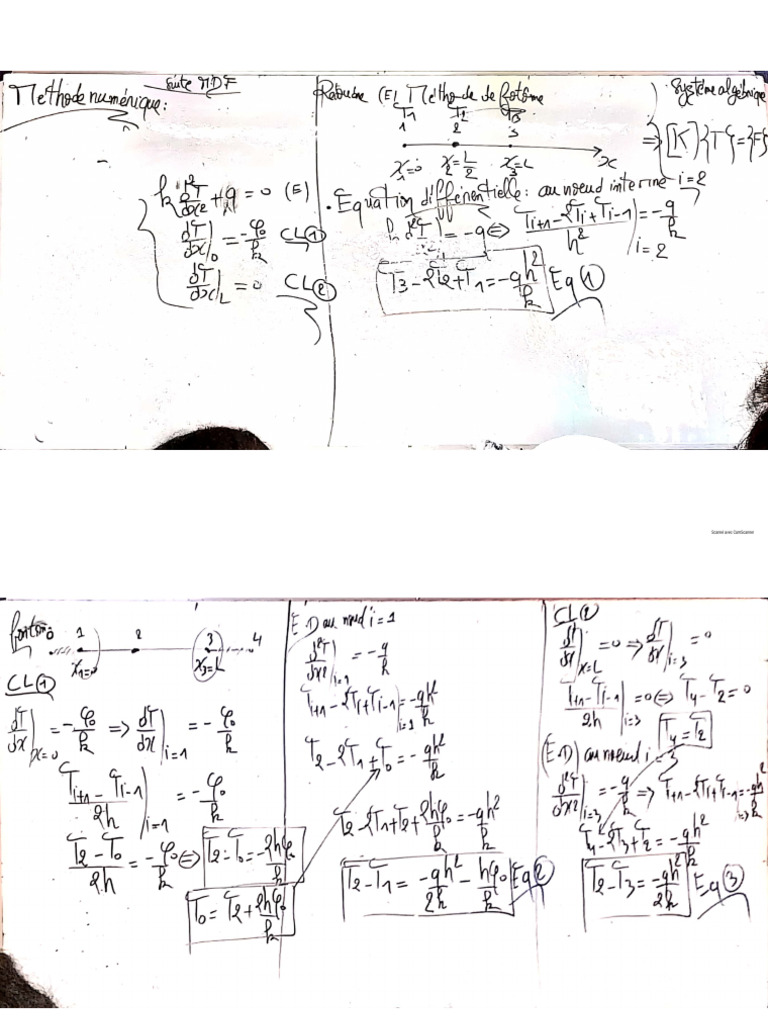 Suite MDF
Méthode numérique:
k d²T/dx² + q = 0 (E)
dT/dx|₀ = -φ₀/k CL①
dT/dx|L = 0 CL②
Résoudre (E) Méthode de fantôme
T1 T2 T3
1 2 3
x₁=0 x₂=L/2 x₃=L x
• Equation différentielle: au noeud interne i=2
k d²T| = -q ⇔ (Ti+1 - 2Ti + Ti-1)/h² |i=2 = -q/k
T3 - 2T2 + T1 = -qh²/k Eq①
Système algébrique
⇒ [K]{T}={F}
Scanné avec CamScanner
fantôme
0 1 2 3 4
x₁=0 x₃=L
CL①
dT/dx|x=0 = -φ₀/k ⇒ dT/dx|i=1 = -φ₀/k
(Ti+1 - Ti-1)/2h |i=1 = -φ₀/k
(T2 - T0)/2h = -φ₀/k ⇔ T2 - T0 = -2hφ₀/k
T0 = T2 + 2hφ₀/k
ED au noeud i=1
d²T/dx²|i=1 = -q/k
Ti+1 - 2Ti + Ti-1|i=1 = -qh²/k
T2 - 2T1 + T0 = -qh²/k
T2 - 2T1 + T2 + 2hφ₀/k = -qh²/k
T2 - T1 = -qh²/2k - hφ₀/k Eq②
CL②
dT/dx|x=L = 0 ⇒ dT/dx|i=3 = 0
(Ti+1 - Ti-1)/2h |i=3 = 0 ⇔ T4 - T2 = 0
T4 = T2
(ED) au noeud i=3
d²T/dx²|i=3 = -q/k ⇒ Ti+1 - 2Ti + Ti-1 = -qh²/k
T4 - 2T3 + T2 = -qh²/k
T2 - T3 = -qh²/2k Eq③